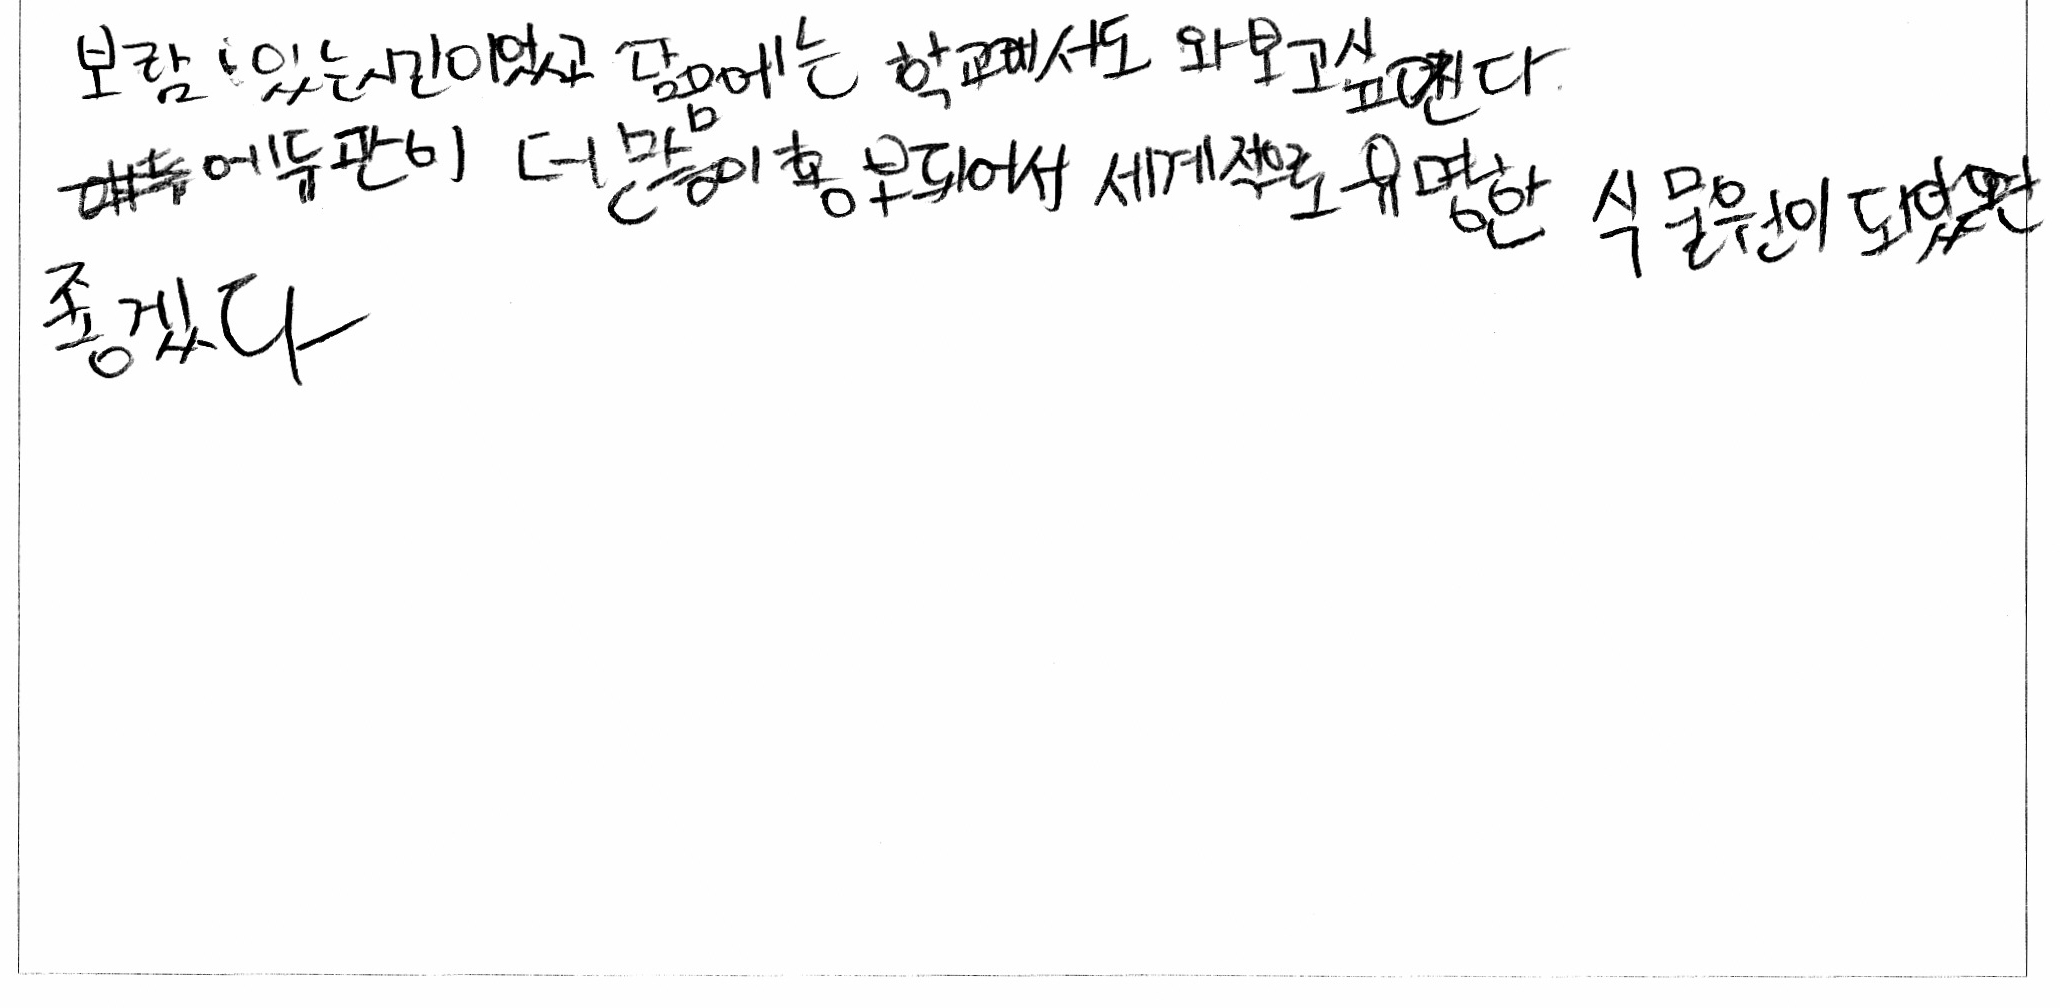 보람 있는시간이었고 담음에는 학교에서도 와보고싶다
에듀관이 더 많이 홍보되어서 세계적으로 유명한 식물원이 되었으면
좋겠다